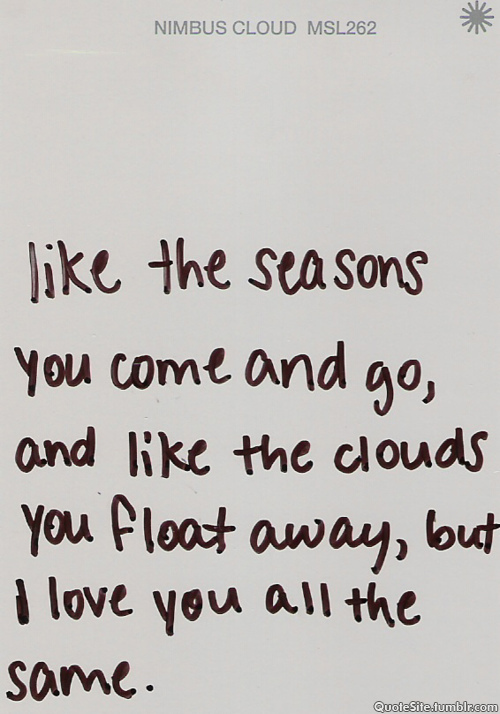 NIMBUS CLOUD MSL262
like the seasons
you come and go,
and like the clouds
you float away, but
I love you all the
same.
QuoteSite.tumblr.com